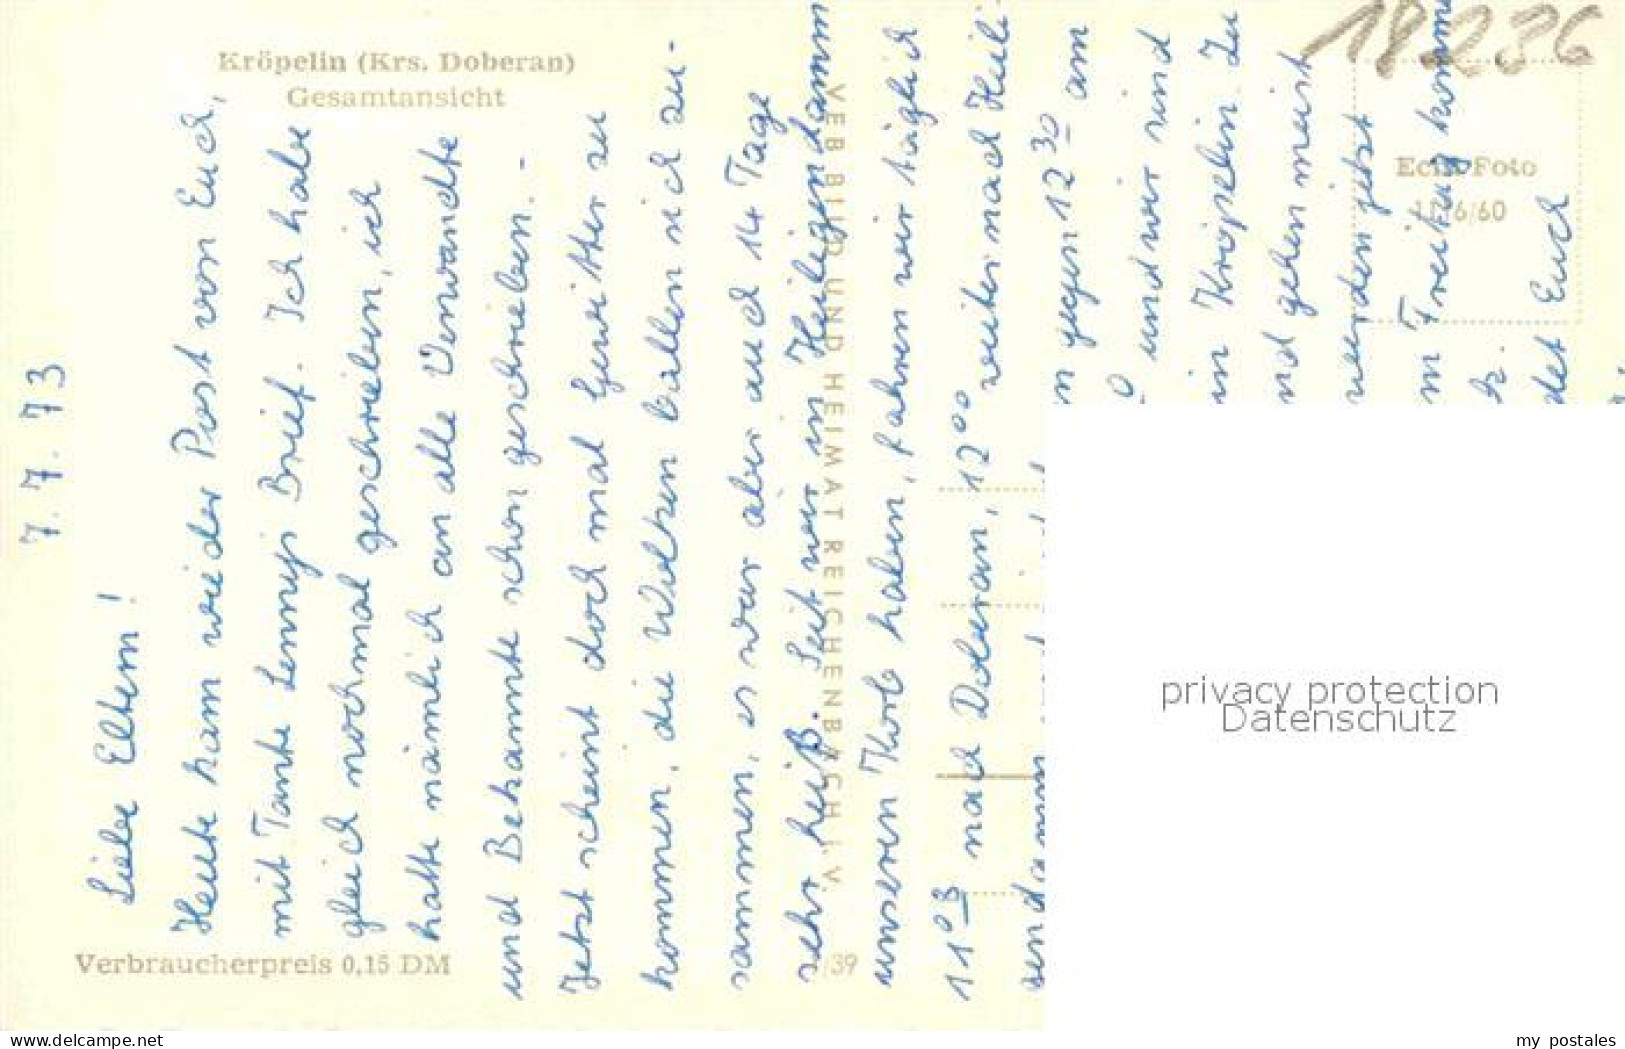 Kröpelin (Krs. Doberan)
Gesamtansicht
18236
Echt Foto
11/6/60
7. 7. 73
Liebe Eltern!
Heute kam wieder Post von Euch,
mit Tante Lennys Brief. Ich habe
gleich nochmal geschrieben, ich
hatte nämlich an alle Verwandte
und Bekannte schon geschrieben. -
Jetzt scheint doch mal Gewitter zu
kommen, die Wolken ballen sich zu-
sammen, es war aber auch 14 Tage
sehr heiß. Seit wir in Heiligendamm
unseren Korb haben, fahren wir täglich
11 03 nach Doberan, 12 00 weiter nach Heili-
gendamm
n gegen 12 30 am
und wir sind
in Kröpelin. Zu
nd gehen meist
werden jetzt
m Freitag komm
tz.
det Euch
VEB BILD UND HEIMAT REICHENBACH I. V.
Verbraucherpreis 0,15 DM
/39
privacy protection
Datenschutz
www.delcampe.net
my_postales